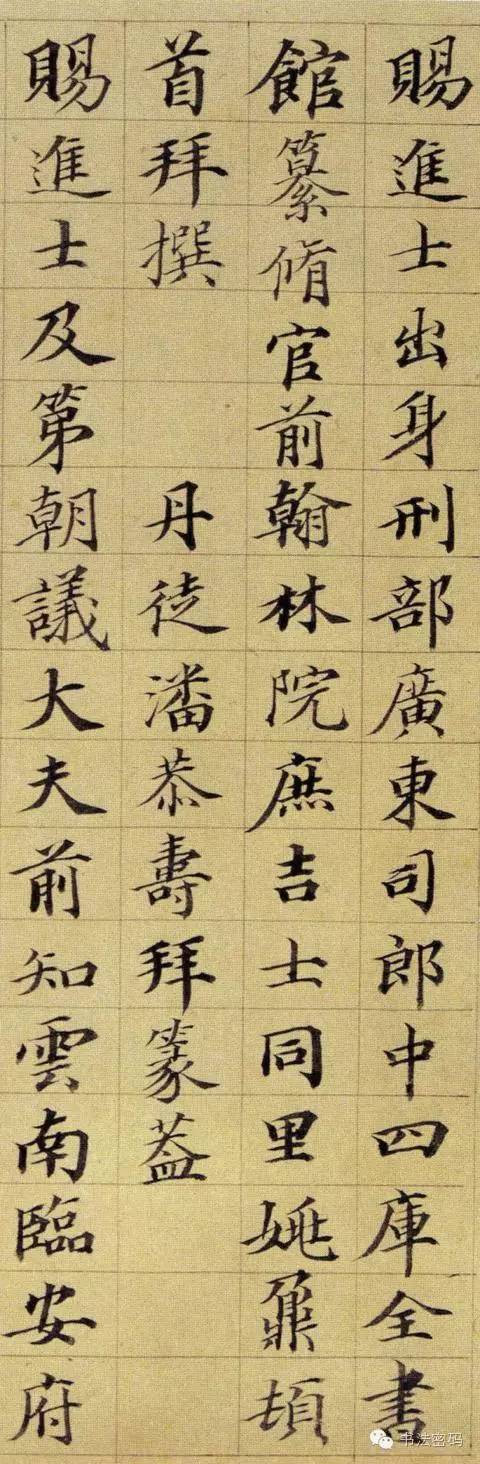 賜進士出身刑部廣東司郎中四庫全書
館纂脩官前翰林院庶吉士同里姚鼐頓
首拜撰 丹徒潘恭壽拜篆蓋
賜進士及第朝議大夫前知雲南臨安府
书法密码